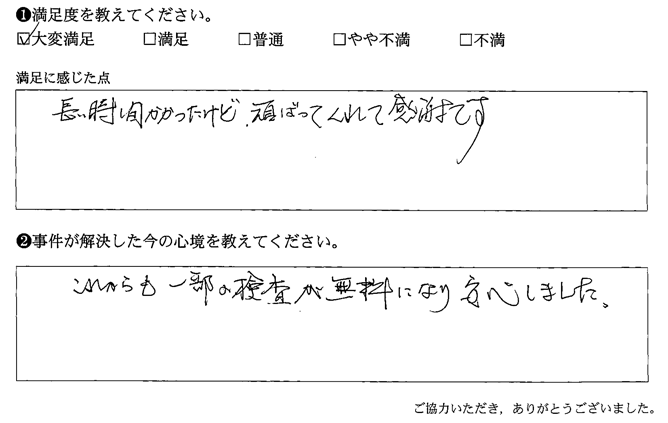 ❶満足度を教えてください。
☑大変満足 □満足 □普通 □やや不満 □不満
満足に感じた点
長い時間かかったけど、頑ばってくれて感謝です
❷事件が解決した今の心境を教えてください。
これからも一部の検査が無料になり安心しました。
ご協力いただき，ありがとうございました。